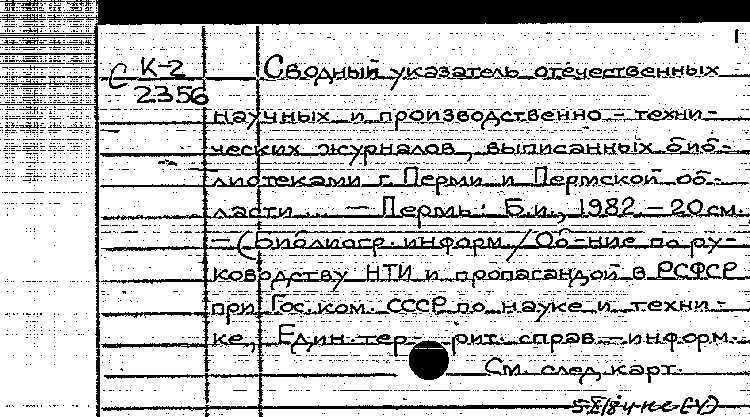 1
С К-2
2356
Сводный указатель отечественных
научных и производственно-техни-
ческих журналов, выписанных биб-
лиотеками г. Перми и Пермской об-
ласти ... — Пермь: Б.и., 1982. — 20 см.
— (Библиогр. информ. / Об-ние по ру-
ководству НТИ и пропагандой в РСФСР
при Гос. ком. СССР по науке и техни-
ке, Един. террит. справ.-информ.
См. след. карт.